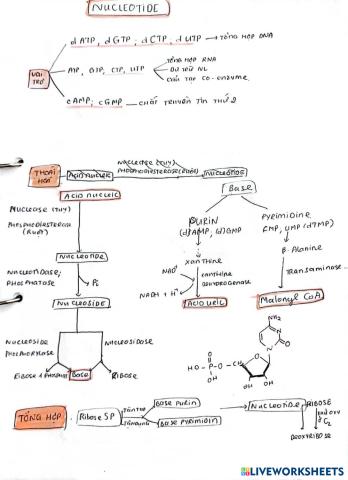 NUCLEOTIDE
VAI TRÒ
dATP, dGTP, dCTP, dUTP → TỔNG HỢP DNA
ATP, GTP, CTP, UTP
TỔNG HỢP RNA
DỰ TRỮ NL
CẤU TẠO CO-ENZYME
cAMP, cGMP → CHẤT TRUYỀN TIN THỨ 2
THOÁI HOÁ
ACID NUCLEIC
NUCLEASE (TUỴ)
PHOSPHODIESTERASE (RUỘT)
NUCLEOTIDE
ACID NUCLEIC
NUCLEASE (TUỴ)
PHOSPHODIESTERASE
(RUỘT)
NUCLEOTIDE
NUCLEOTIDASE;
PHOSPHATASE
Pi
NUCLEOSIDE
NUCLEOSIDE
PHOSPHORYLASE
NUCLEOSIDASE
BASE
RIBOSE
Base
PURIN
(d)AMP, (d)GMP
XANTHINE
NAD+
NADH + H+
XANTHINE
DEHYDROGENASE
ACID URIC
PYRIMIDINE
CMP, UMP (dTMP)
β-Alanine
TRANSAMINASE
Malonyl CoA
NH2
N
N
O
HO-P-O-CH2
O
OH
O
OH
OH
TỔNG HỢP
Ribose 5P
BASE PURIN
BASE PYRIMIDIN
Nucleotide
RIBOSE
C2
DEOXYRIBOSE
LIVEWORKSHEETS